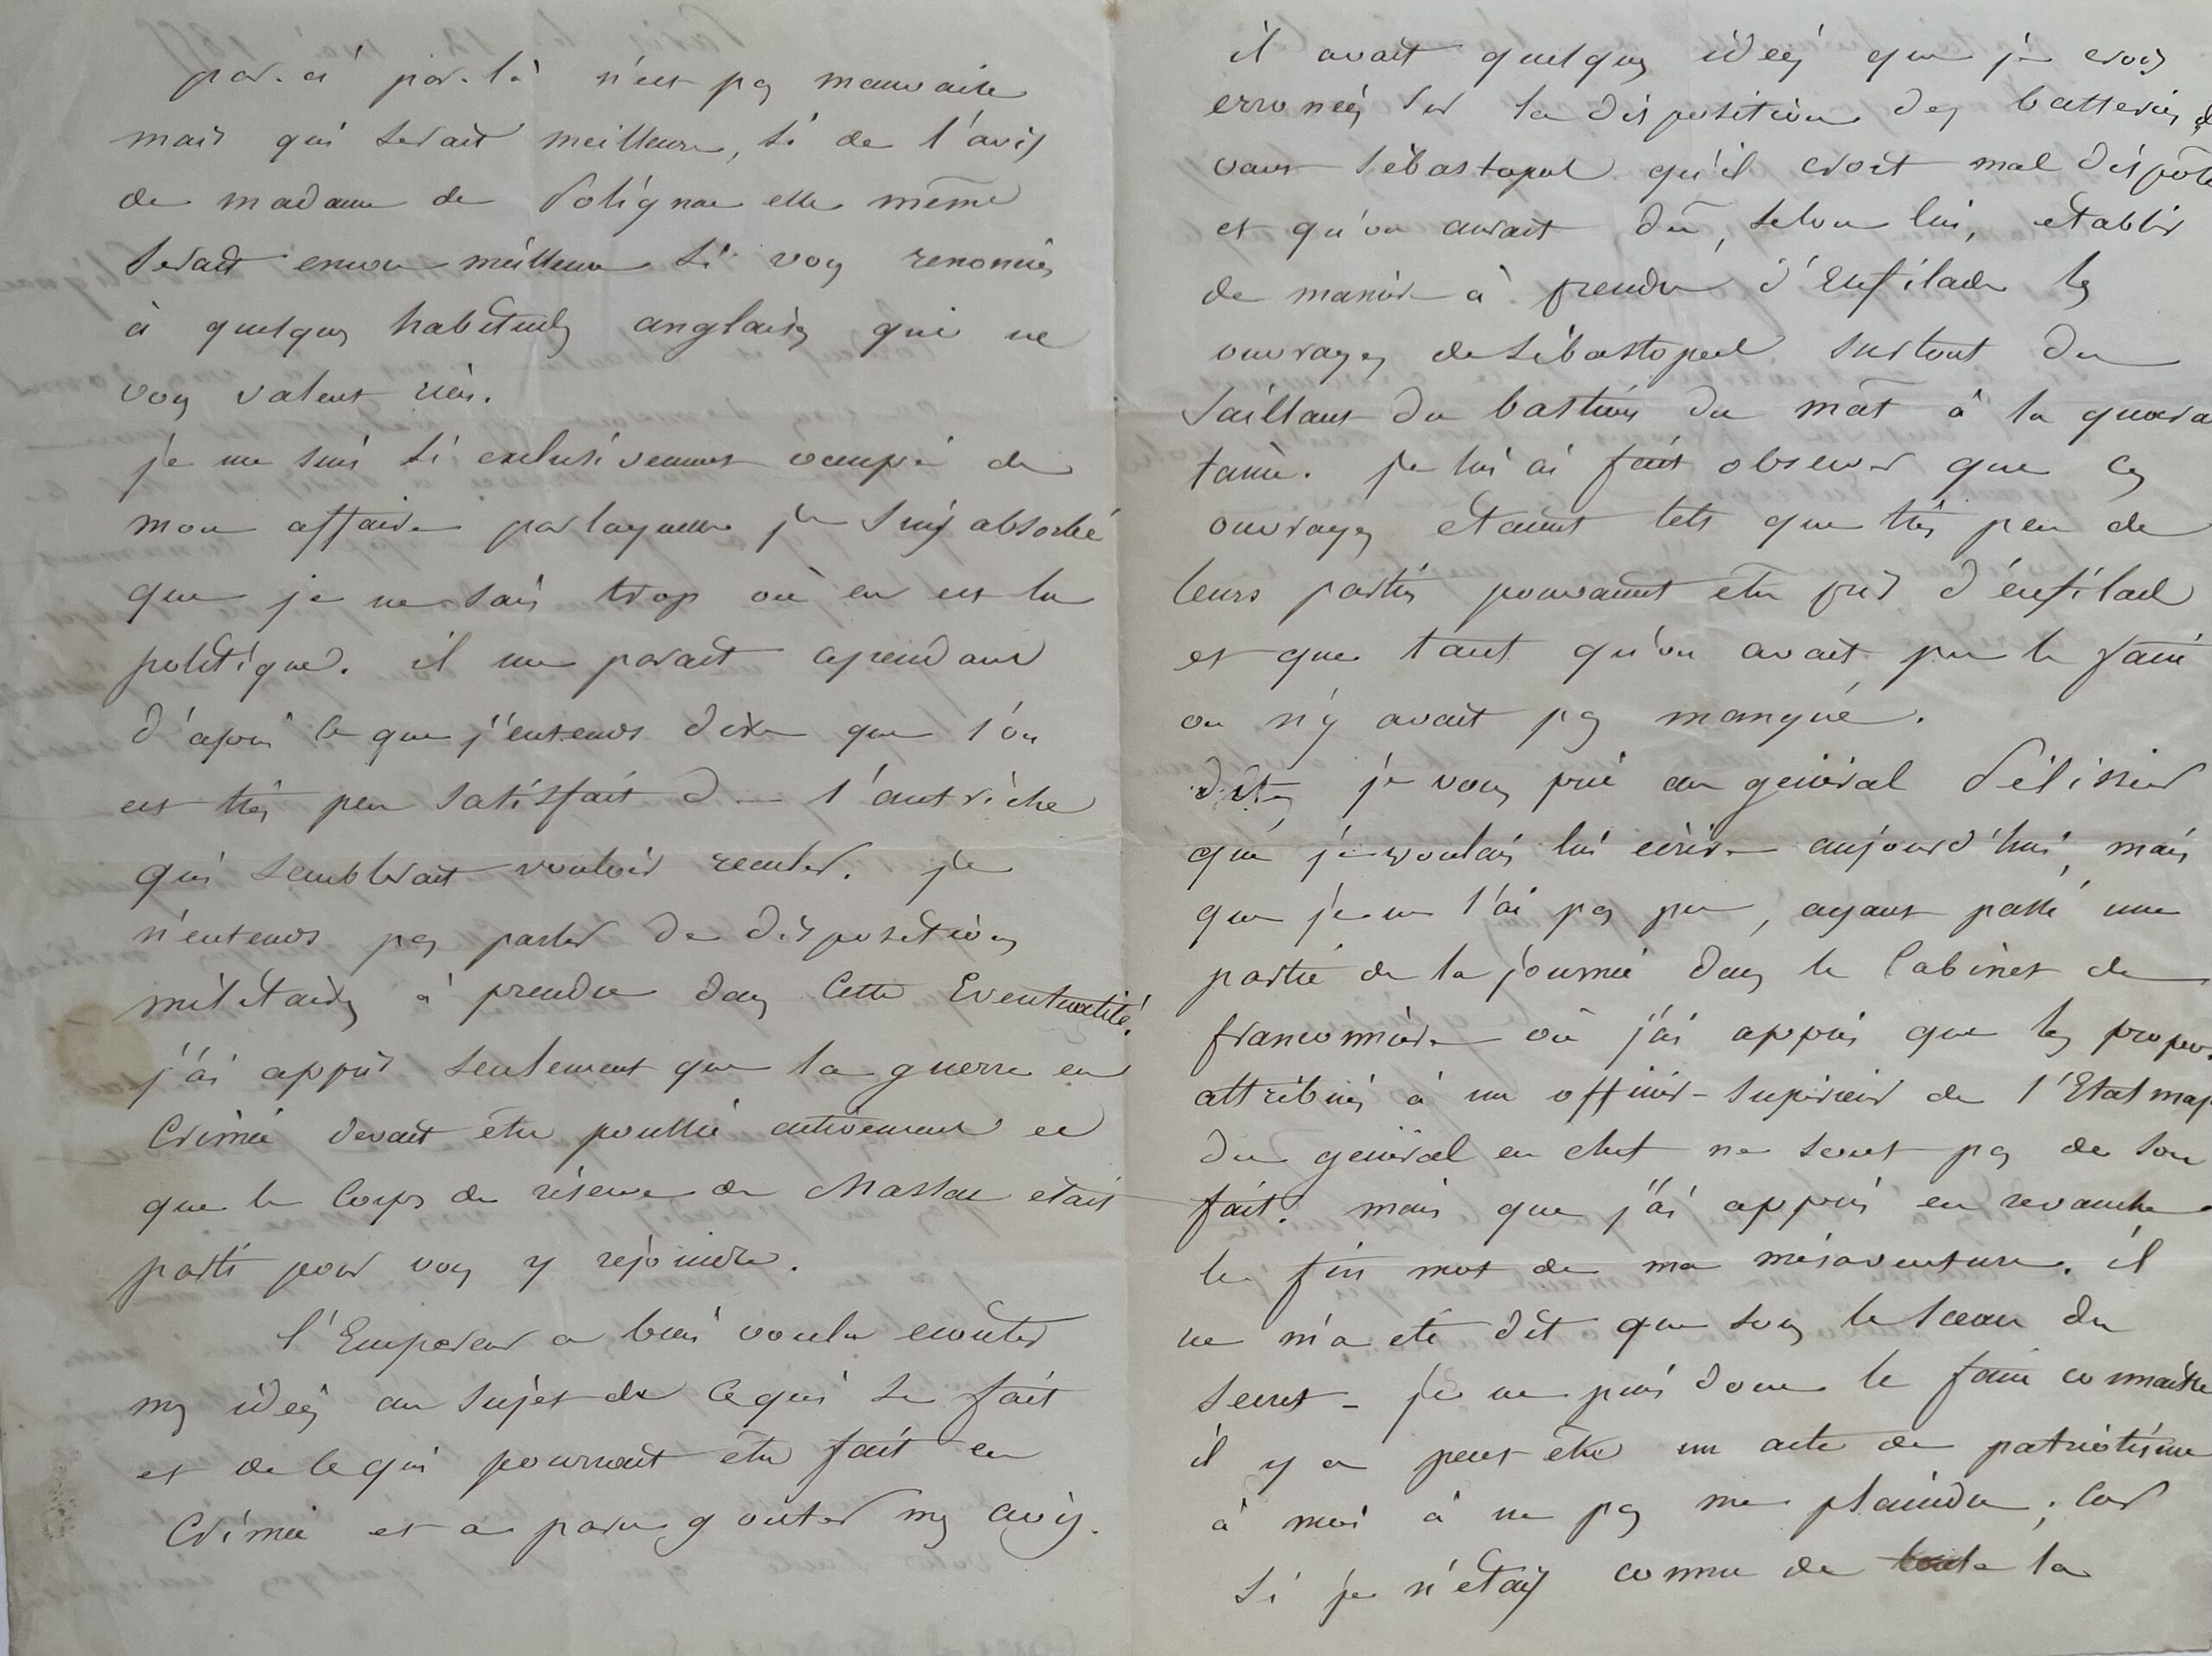 par-ci par-là n'est pas mauvaise
mais qui serait meilleure, si de l'avis
de madame de Polignac elle même
serait encore meilleure si vous renonciez
à quelques habitudes anglaises qui ne
vous valent rien.
je me suis si exclusivement occupé de
mon affaire par laquelle je suis absorbé
que je ne sais trop où en est la
politique. il me parait cependant
d'après ce que j'entends dire que l'on
est très peu satisfait de l'autriche
qui semblerait vouloir reculer. je
n'entends pas parler de dispositions
militaires à prendre dans cette Eventualité.
j'ai appris seulement que la guerre en
Crimée devait être poussée activement et
que le Corps de réserve de Maslac etait
parti pour vous y rejoindre.
l'Empereur a bien voulu ecouter
mes idées au sujet de ce qui se fait
et de ce qui pourrait être fait en
Crimée et a paru goûter mes avis.
il avait quelques idées que je crois
erronées sur la disposition des batteries de
vant Sébastopol qu'il croit mal disposée
et qu'on aurait dû, selon lui, etablir
de manière à prendre d'Enfilade les
ouvrages de Sébastopol surtout du
Saillant du bastion du mât à la quaran
taine. je lui ai fait observer que ces
ouvrages etaient tels que très peu de
leurs parties pouvaient etre pris d'enfilade
et que tant qu'on avait pu le faire
on n'y avait pas manqué.
dites je vous prie au général Pélissier
que je voulais lui écrire aujourd'hui, mais
que je ne l'ai pas pu, ayant passé une
partie de la journée dans le Cabinet de
franconnière où j'ai appris que les propos
attribués à un officier-supérieur de l'Etat maj
du général en chef ne sont pas de son
fait. mais que j'ai appris en revanche
le fin mot de ma mésaventure. il
ne m'a eté dit que sous le sceau du
secret - je ne puis donc le faire connaitre
il y a peut être un acte de patriotisme
à moi à ne pas me plaindre; car
si je n'étais connu de toute la